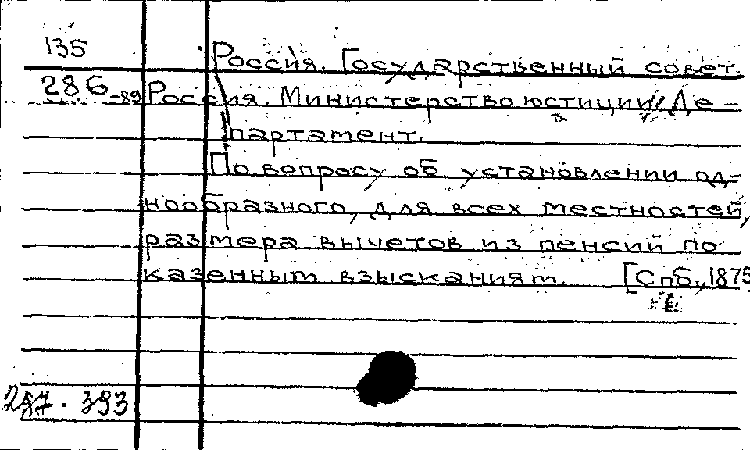 135 Россия. Государственный совет.
286-89 Россия. Министерство юстиции. Де-
партамент.
По вопросу об установлении од-
нообразного, для всех местностей,
размера вычетов из пенсий по
казенным взысканиям. [Спб., 1875
287. 393